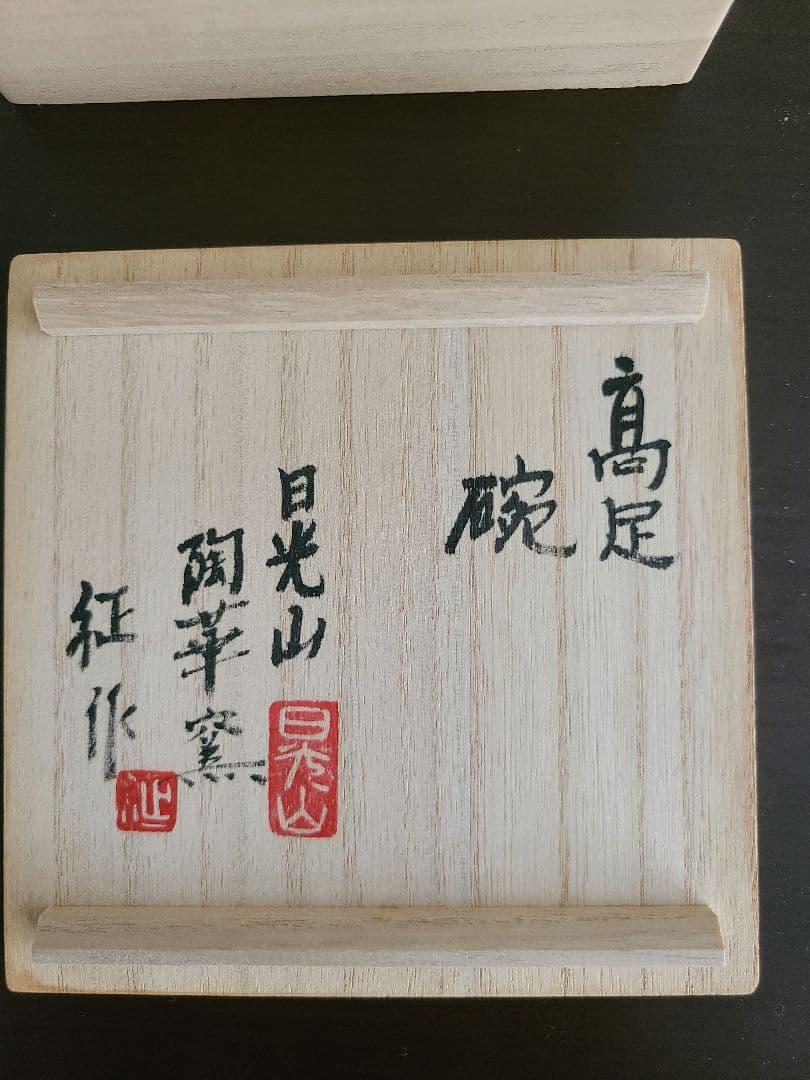 高足
碗
日光山
陶華窯
征作
日光山
征